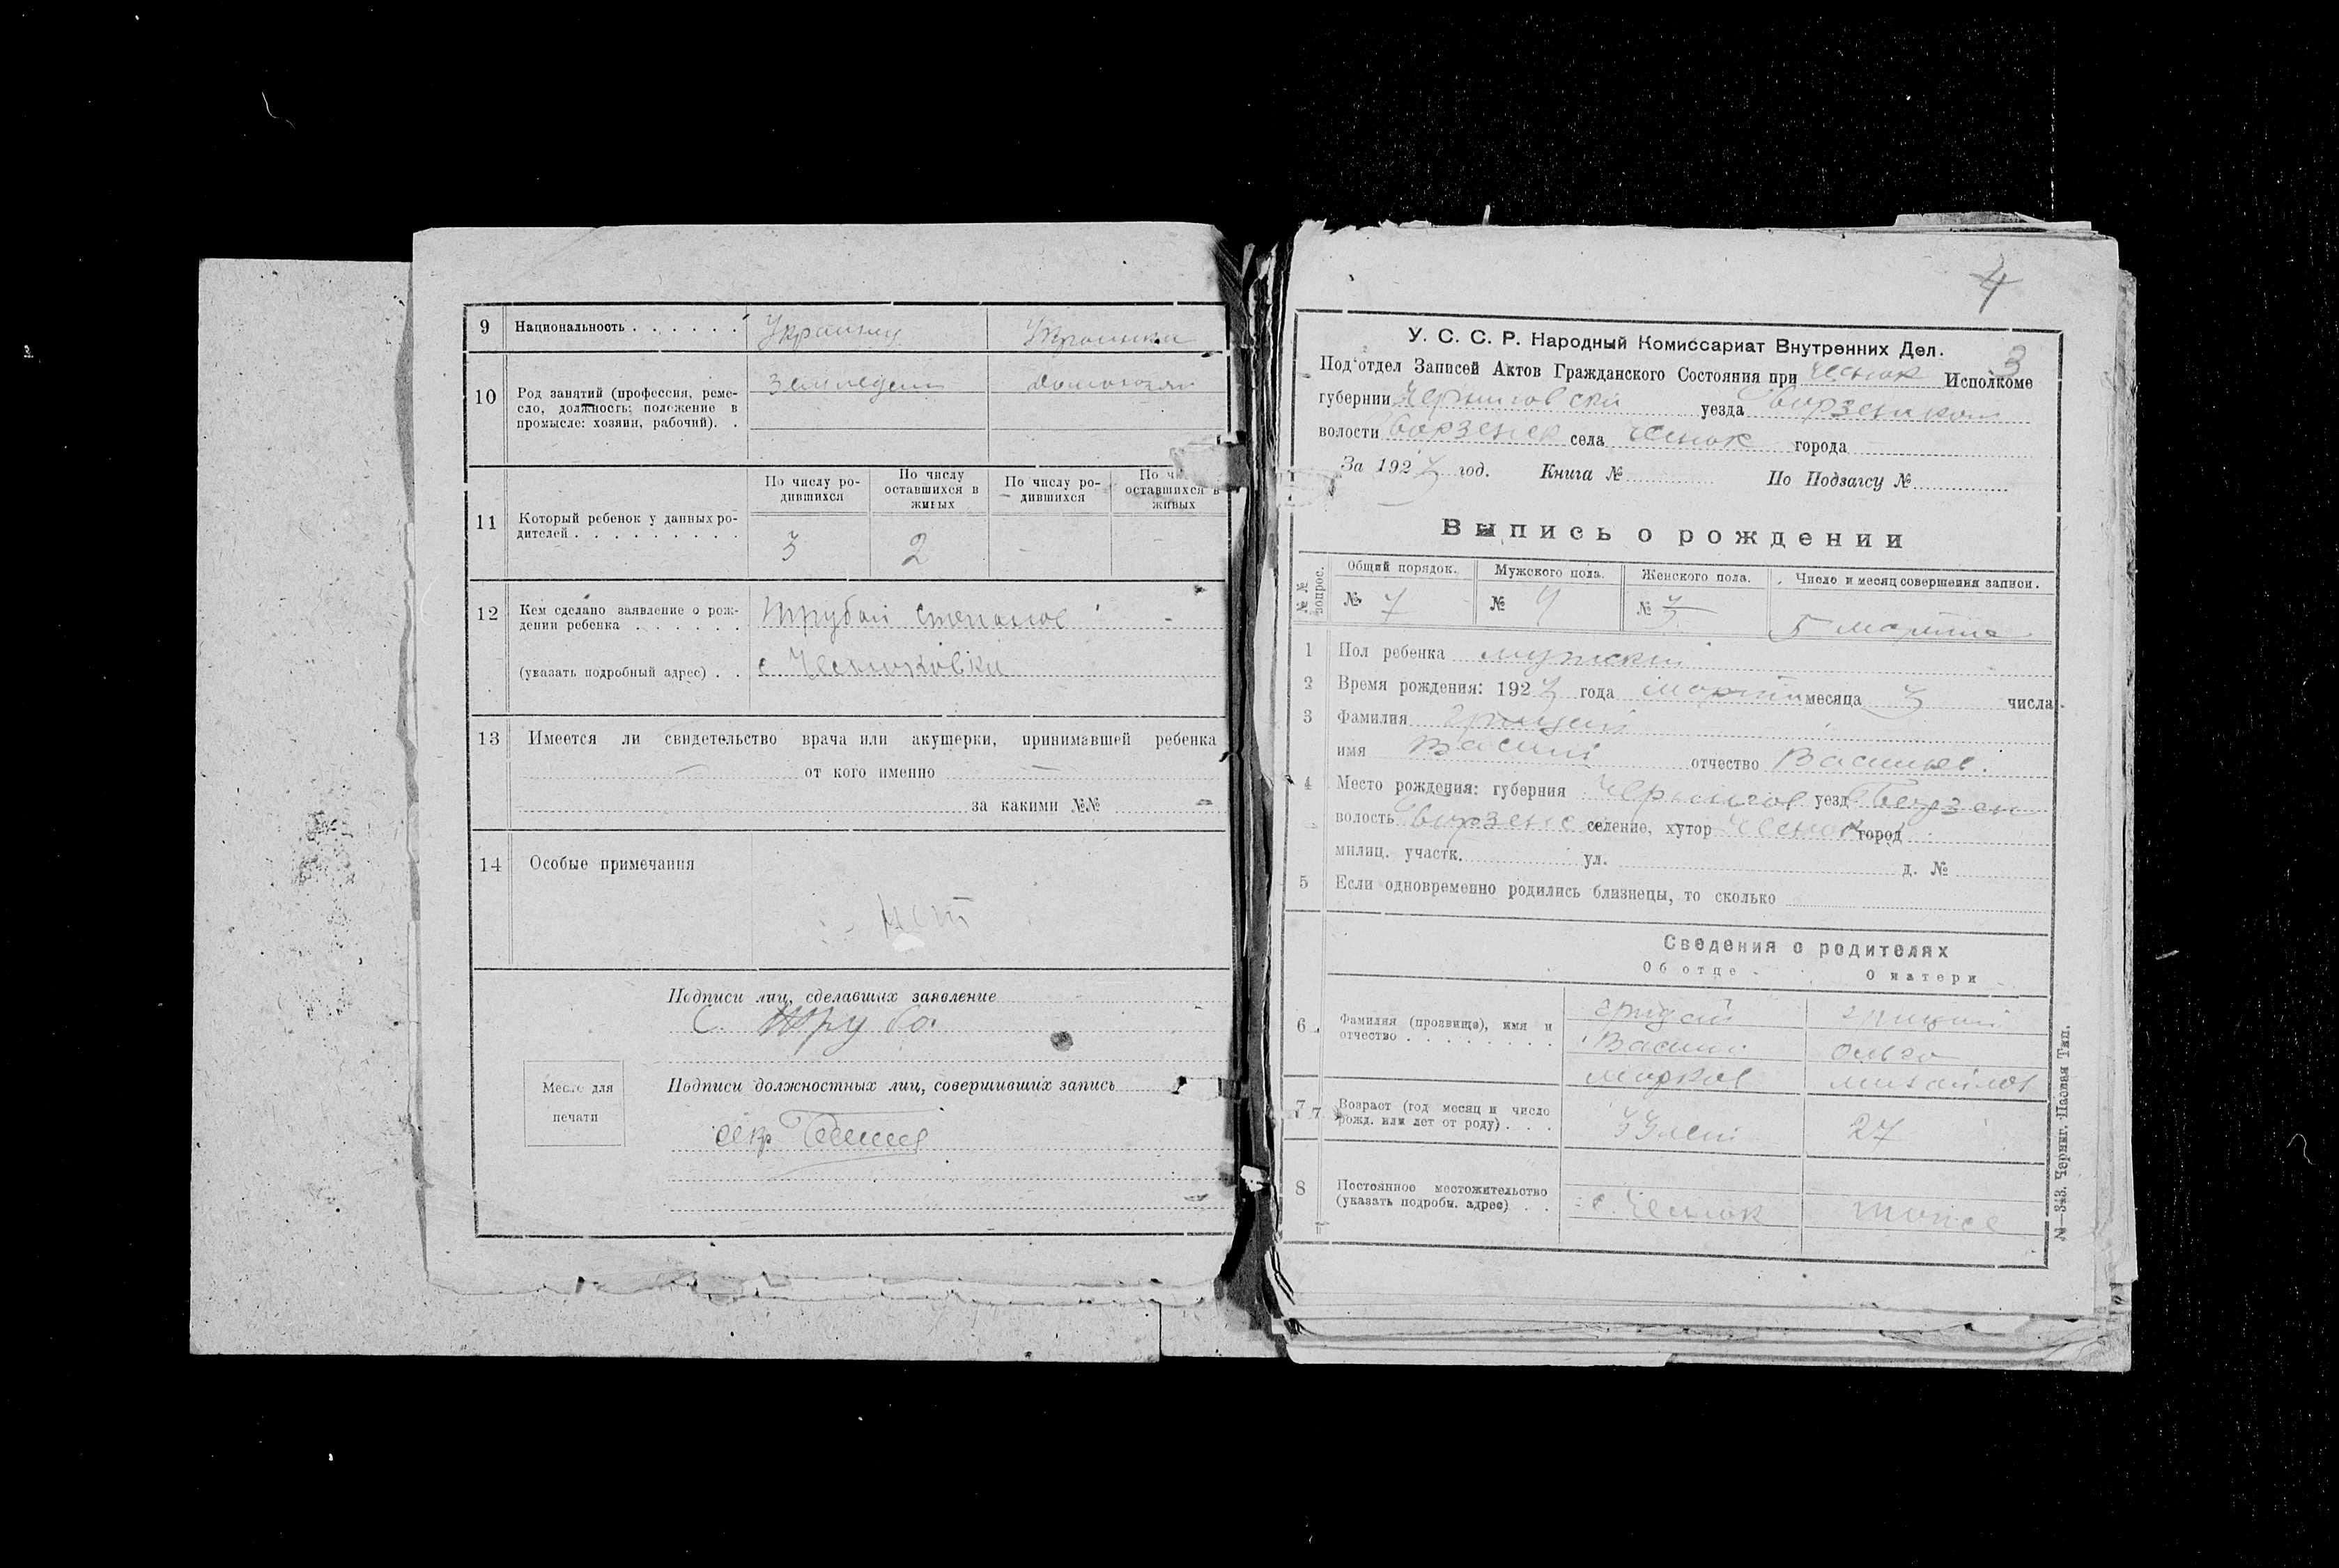 9 Национальность . . . . . . Украинец Украинка
10 Род занятий (профессия, реме-
сло, должность; положение в
промысле: хозяин, рабочий). .
11 Который ребенок у данных ро-
дителей . . . . . . . . .
По числу ро-
дившихся
По числу
оставшихся в
живых
По числу ро-
дившихся
По
оставшихся в
живых
3 2 - -
12 Кем сделано заявление о рож-
дении ребенка . . . . . .
(указать подробный адрес) . .
с. Чесноковки
13 Имеется ли свидетельство врача или акушерки, принимавшей ребенка
— от кого именно —
за какими №№ —
14 Особые примечания
нет
Подписи лиц, сделавших заявление
С Труба
Подписи должностных лиц, совершивших запись
Место для
печати
секр
4
3
У. С. С. Р. Народный Комиссариат Внутренних Дел.
Под'отдел Записей Актов Гражданского Состояния при Чеснок Исполкоме
губернии Черниговской уезда
волости села Чеснок города
За 1923 год. Книга № По Подзагсу №
Выпись о рождении
№№ вопрос.
Общий порядок. Мужского пола. Женского пола. Число и месяц совершения записи.
№ 7 № 4 № 3 5 марта
1 Пол ребенка мужской
2 Время рождения: 1923 года марта месяца 3 числа
3 Фамилия Грицай
имя Василий отчество Васильев.
4 Место рождения: губерния Чернигов уезд Борзен
волость Борзенс селение, хутор Чеснок город
милиц. участк. ул. д. №
5 Если одновременно родились близнецы, то сколько
Сведения о родителях
Об отце . О матери
6 Фамилия (прозвище), имя и
отчество . . . . . . . . .
Грицай Грицай
Василий Ольга
Марков Михайлов
7 Возраст (год месяц и число
рожд. или лет от роду) . . .
33 лет 27
8 Постоянное местожительство
(указать подробн. адрес) . .
с. Чеснок тоже
№—343. Черниг. Паевая Тип.